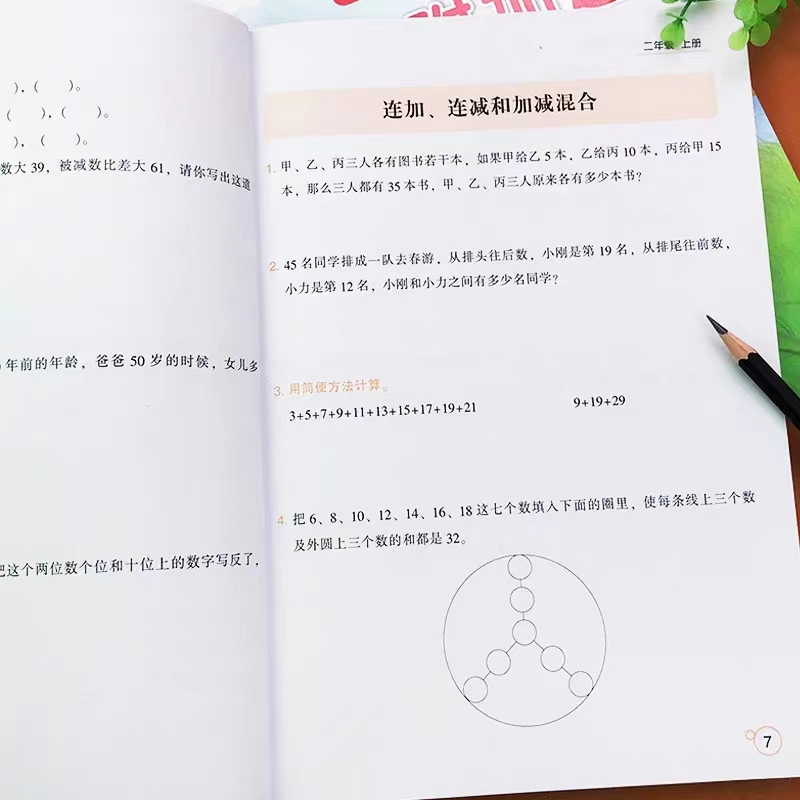 ），（　　）。
（　　），（　　）。
），（　　）。
数大 39，被减数比差大 61，请你写出这道
年前的年龄，爸爸 50 岁的时候，女儿多
把这个两位数个位和十位上的数字写反了，
二年级 上册
连加、连减和加减混合
1. 甲、乙、丙三人各有图书若干本，如果甲给乙 5 本，乙给丙 10 本，丙给甲 15
本，那么三人都有 35 本书，甲、乙、丙三人原来各有多少本书？
2. 45 名同学排成一队去春游，从排头往后数，小刚是第 19 名，从排尾往前数，
小力是第 12 名，小刚和小力之间有多少名同学？
3. 用简便方法计算。
3+5+7+9+11+13+15+17+19+21　　9+19+29
4. 把 6、8、10、12、14、16、18 这七个数填入下面的圈里，使每条线上三个数
及外圆上三个数的和都是 32。
7